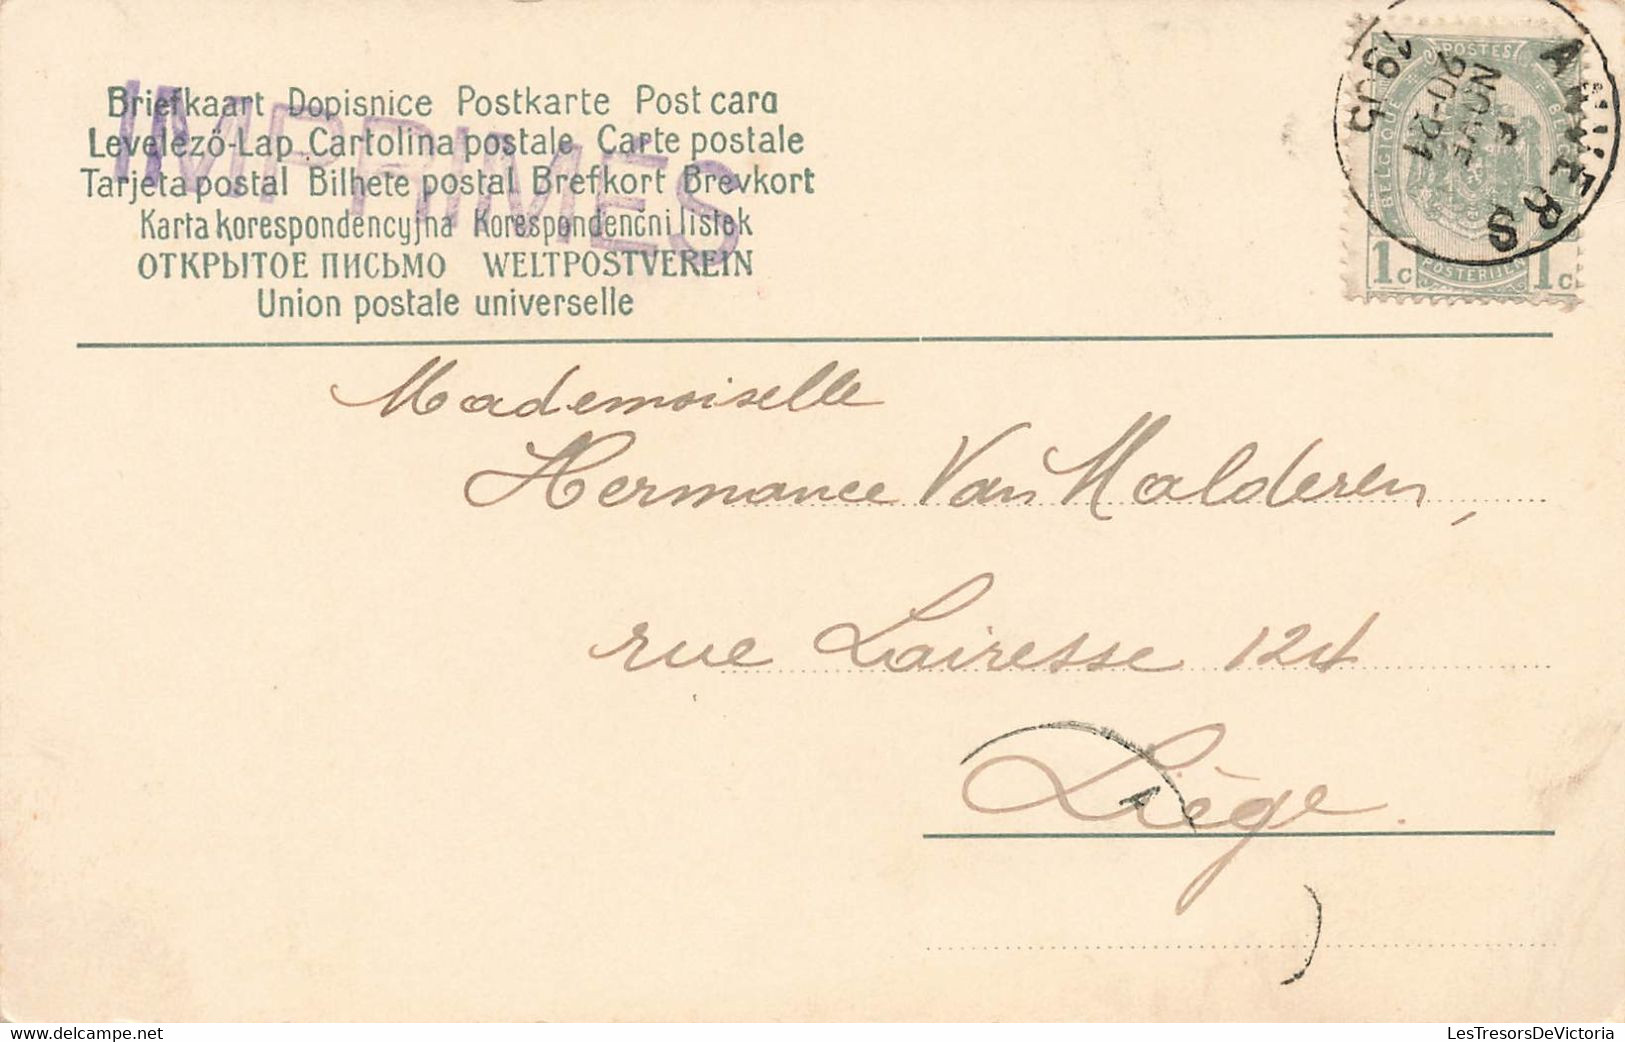 Briefkaart Dopisnice Postkarte Post card
Levelező-Lap Cartolina postale Carte postale
Tarjeta postal Bilhete postal Brefkort Brevkort
Karta korespondencyjna Korespondenční listek
ОТКРЫТОЕ ПИСЬМО WELTPOSTVEREIN
Union postale universelle
IMPRIMES
POSTES
BELGIQUE
1c POSTERIJEN 1c
ANVERS
1905
NOVE
Mademoiselle
Hermance Van Malderen,
rue Lairesse 124
Liège.
LesTresorsDeVictoria